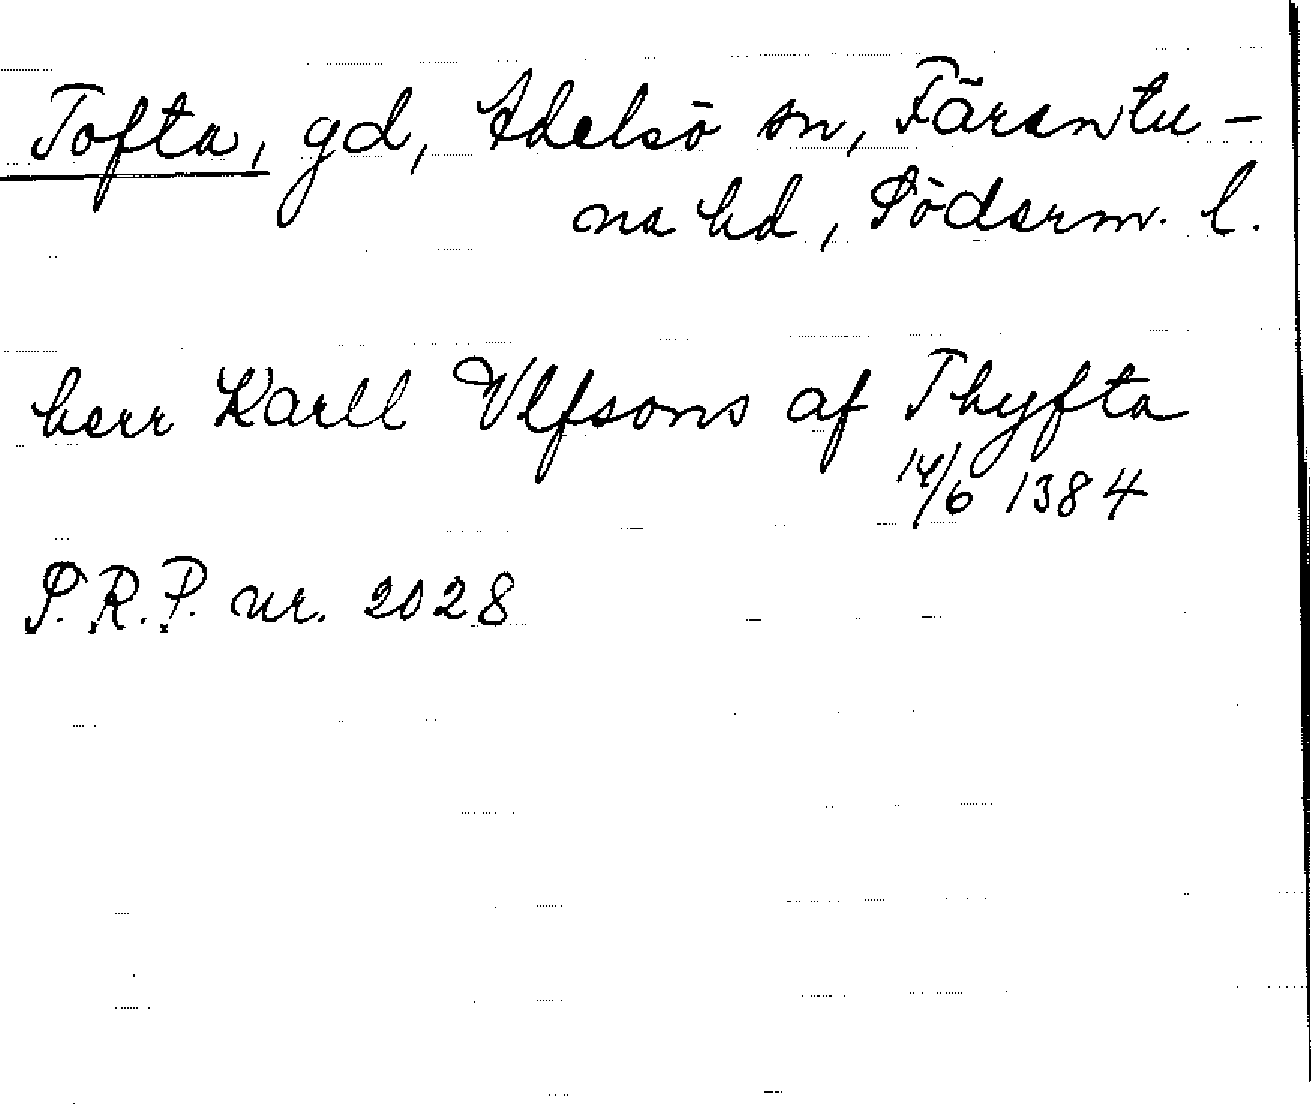 Tofta, gd, Adelsö sn, Färentu-
na hd, Söderm. l.
herr Karll Vlfsons af Thyfta
14/6 1384
S.R.P. nr. 2028